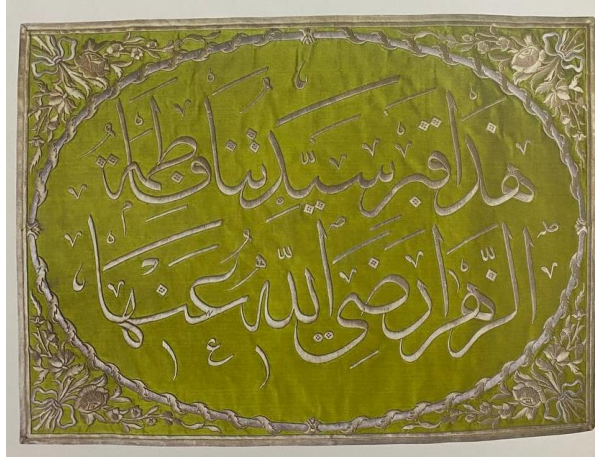 هذا قبر سيدتنا فاطمة
الزهرا رضي الله عنها